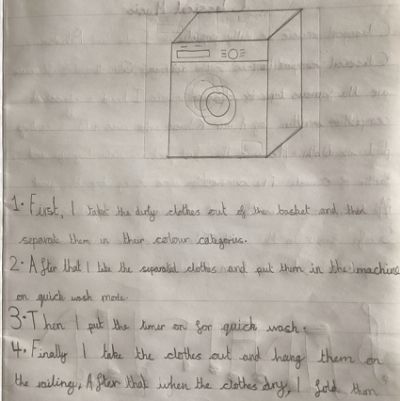 1. First, I take the dirty clothes out of the basket and then
separate them in their colour categories.
2. After that I take the separated clothes and put them in the machine
on quick wash mode.
3. Then I put the timer on for quick wash.
4. Finally I take the clothes out and hang them on
the railing, After that when the clothes dry, I fold them